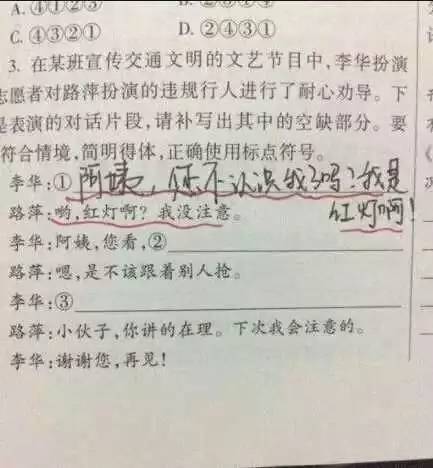 A. ④①②③
C. ④③②① D. ②④③①
3. 在某班宣传交通文明的文艺节目中,李华扮演
志愿者对路萍扮演的违规行人进行了耐心劝导。下
是表演的对话片段,请补写出其中的空缺部分。要
符合情境,简明得体,正确使用标点符号。
李华:①阿姨,您不认识我了吗?我是
红灯啊!
路萍:哟,红灯啊?我没注意。
李华:阿姨,您看,②
路萍:嗯,是不该跟着别人抢。
李华:③
路萍:小伙子,你讲的在理。下次我会注意的。
李华:谢谢您,再见!